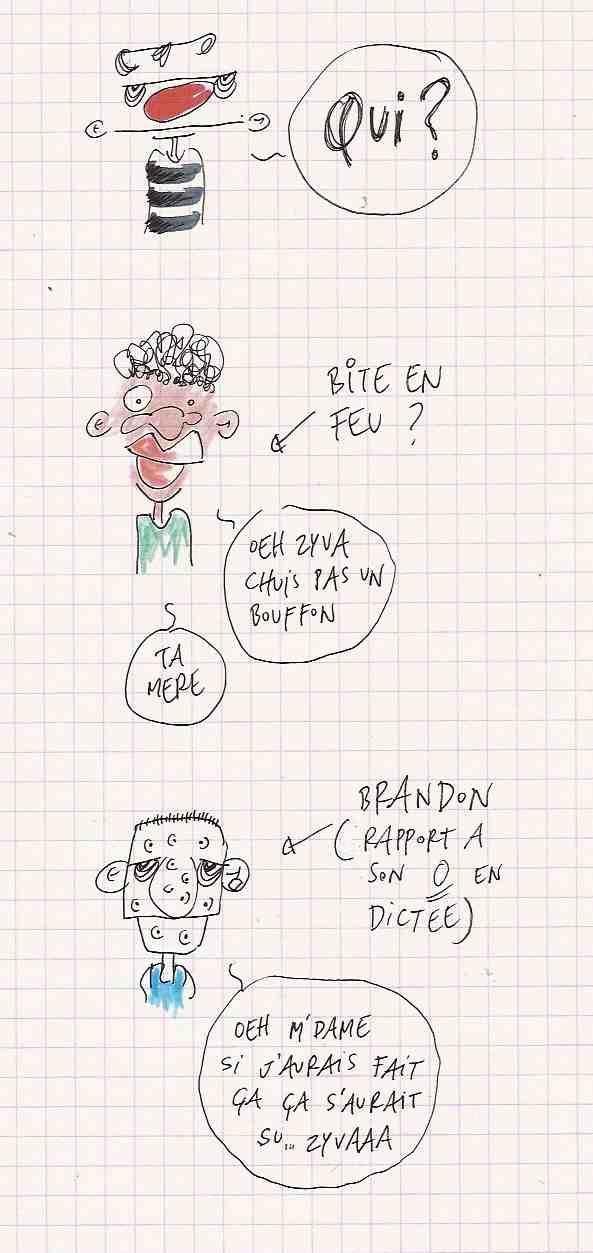 QUI ?
BITE EN
FEU ?
OEH ZYVA
CHUIS PAS UN
BOUFFON
TA
MERE
BRANDON
(RAPPORT A
SON O EN
DICTÉE)
OEH M'DAME
SI J'AURAIS FAIT
ÇA ÇA S'AURAIT
SU... ZYVAAA